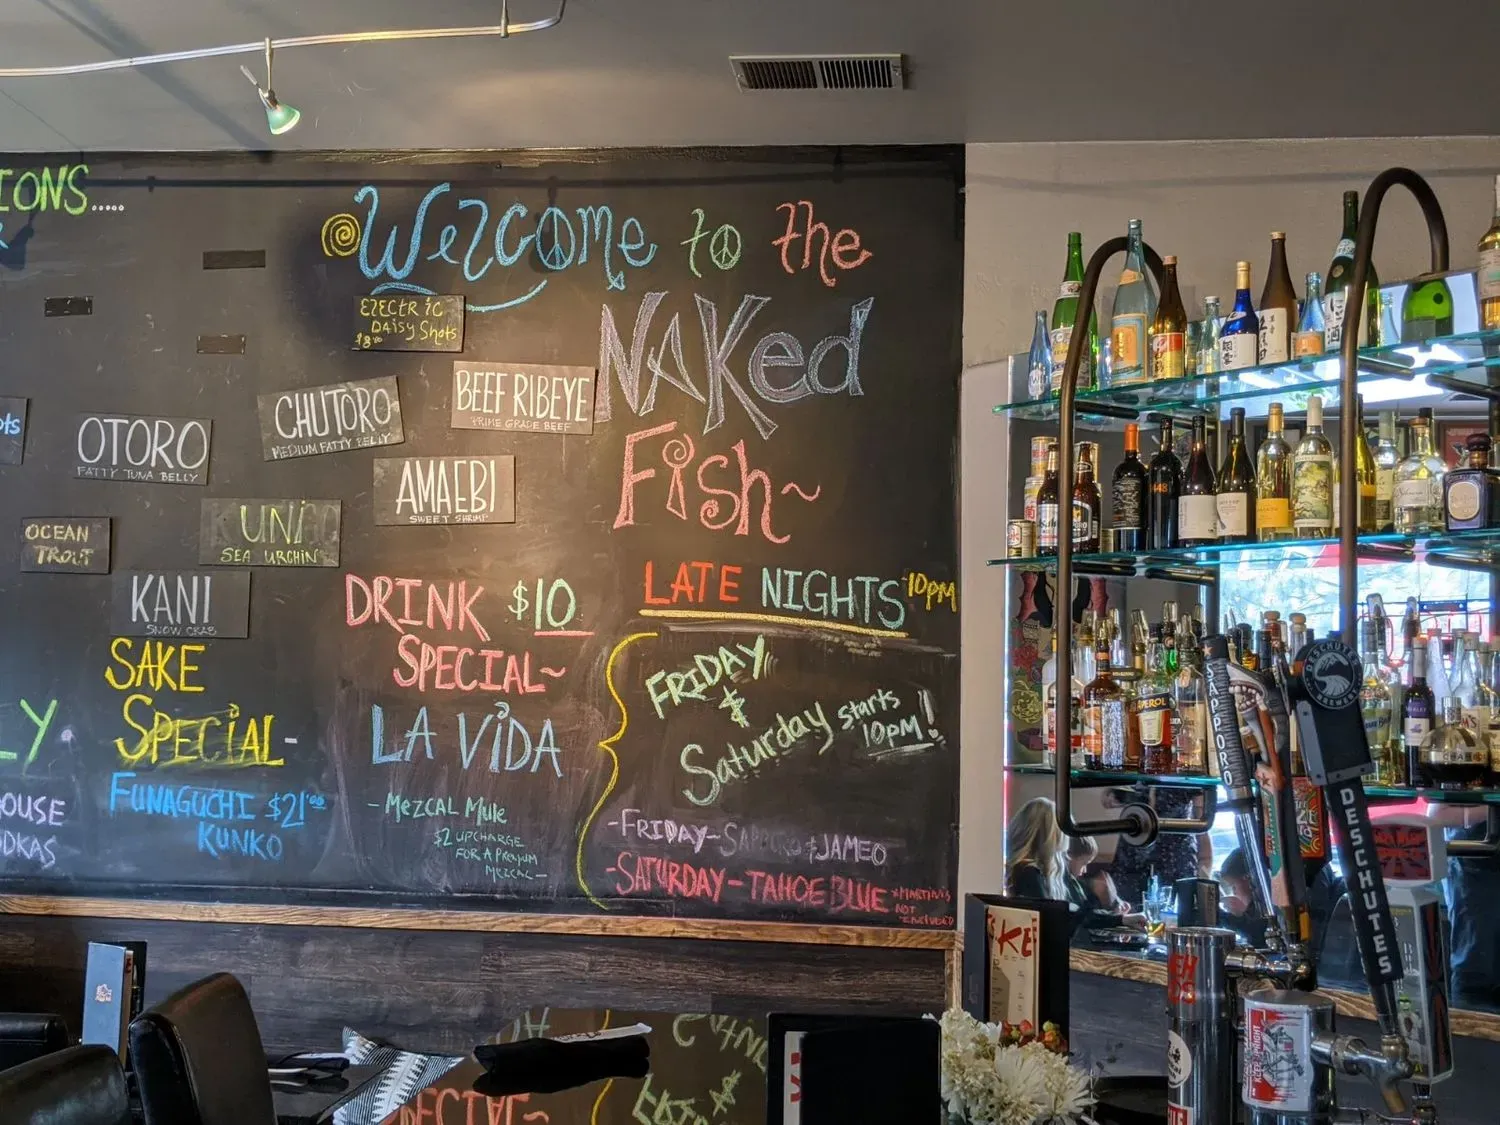 IONS.....
Welcome to the
NAKed
Fish~
ELECTRIC
DAISY Shots
$8.00
BEEF RIBEYE
PRIME GRADE BEEF
CHUTORO
MEDIUM FATTY BELLY
OTORO
FATTY TUNA BELLY
AMAEBI
SWEET SHRIMP
UNI
SEA URCHIN
OCEAN
TROUT
KANI
SNOW CRAB
SAKE
SPECIAL-
FUNAGUCHI $21.00
KUNKO
LY
OUSE
DKAS
DRINK $10
SPECIAL~
LA VIDA
- MEZCAL MULE
$2 UPCHARGE
FOR A PREMIUM
MEZCAL -
LATE NIGHTS ~10PM
FRIDAY
&
Saturday starts
10PM!
-FRIDAY- SAPPORO & JAMEO
-SATURDAY - TAHOE BLUE
*MARTINIS
NOT
INCLUDED
SAPPORO
DESCHUTES
BREWERY
DESCHUTES
APEROL